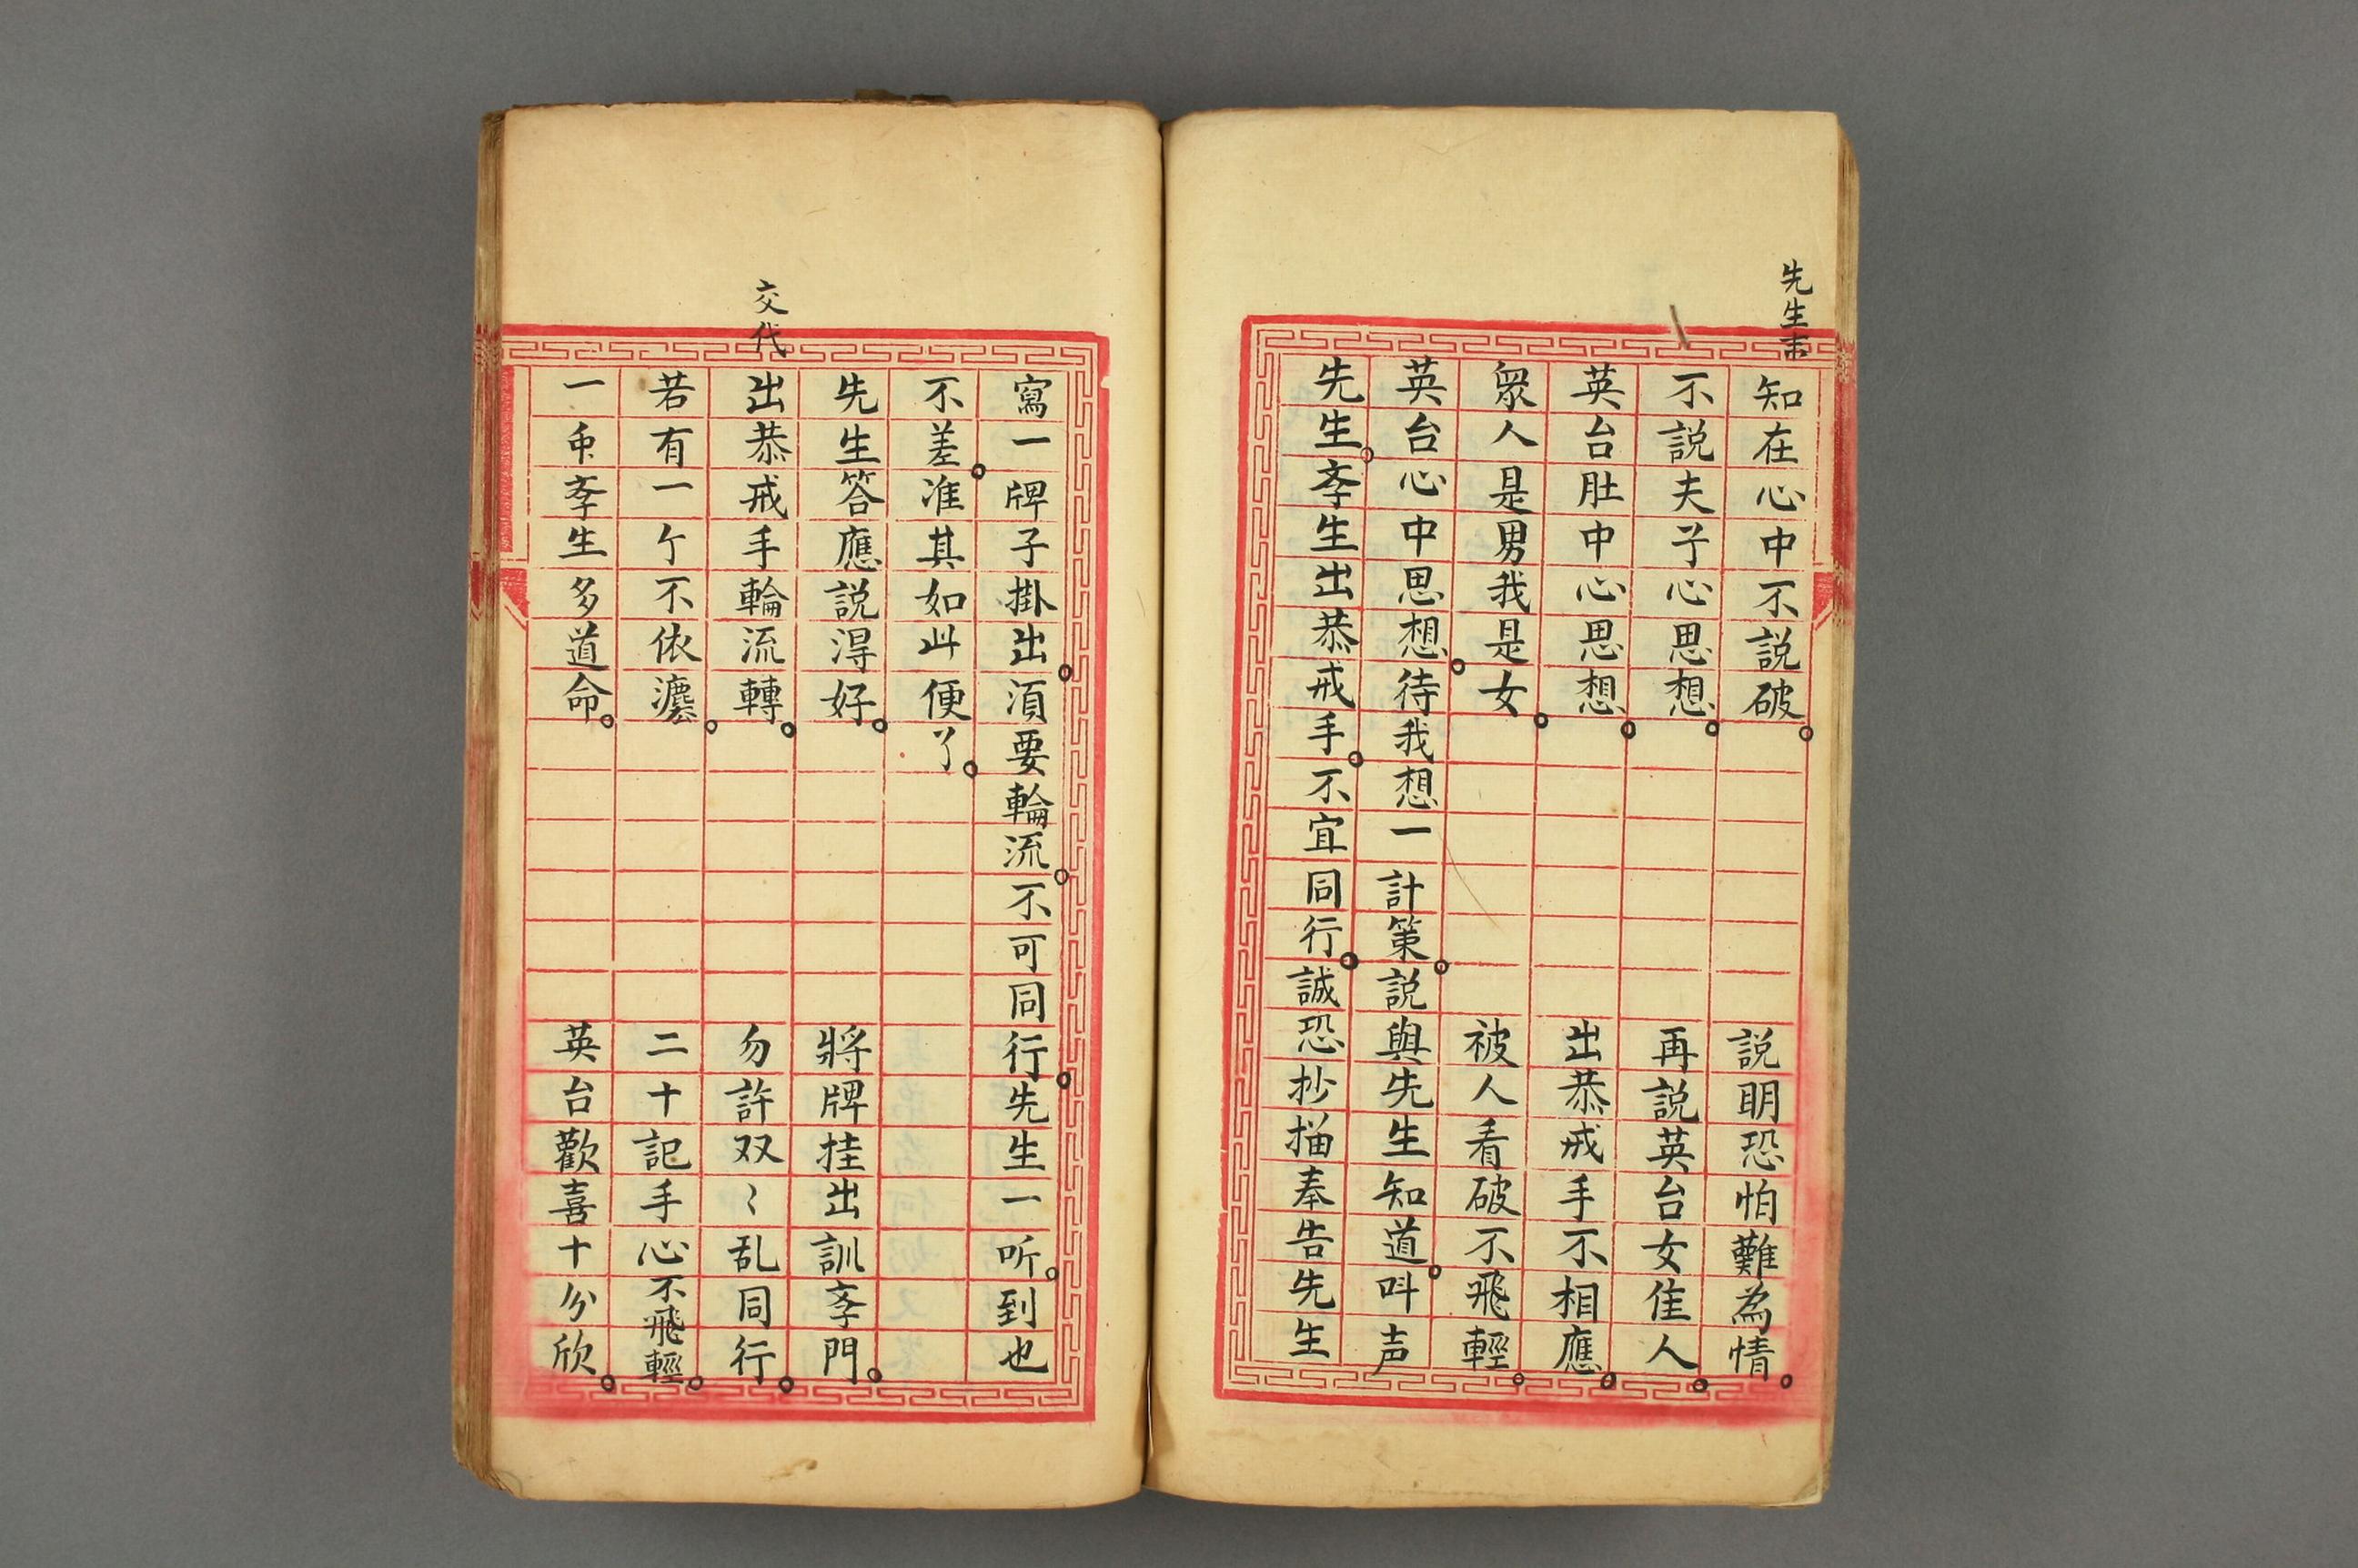 先生末
知在心中不説破。説明恐怕難為情。
不説夫子心思想。再説英台女佳人。
英台肚中心思想。出恭戒手不相應。
衆人是男我是女。被人看破不飛輕。
英台心中思想。待我想一計策。説與先生知道。呌声
先生。斈生出恭戒手。不宜同行。誠恐抄描奉告先生
寫一牌子掛出。湏要輪流。不可同行。先生一听。到也
不差。准其如此便了。
先生答應説淂好。將牌挂出訓斈門。
交代
出恭戒手輪流轉。勿許双〻乱同行。
若有一个不依。二十記手心不飛輕。
一斈生多道命。英台歡喜十分欣。